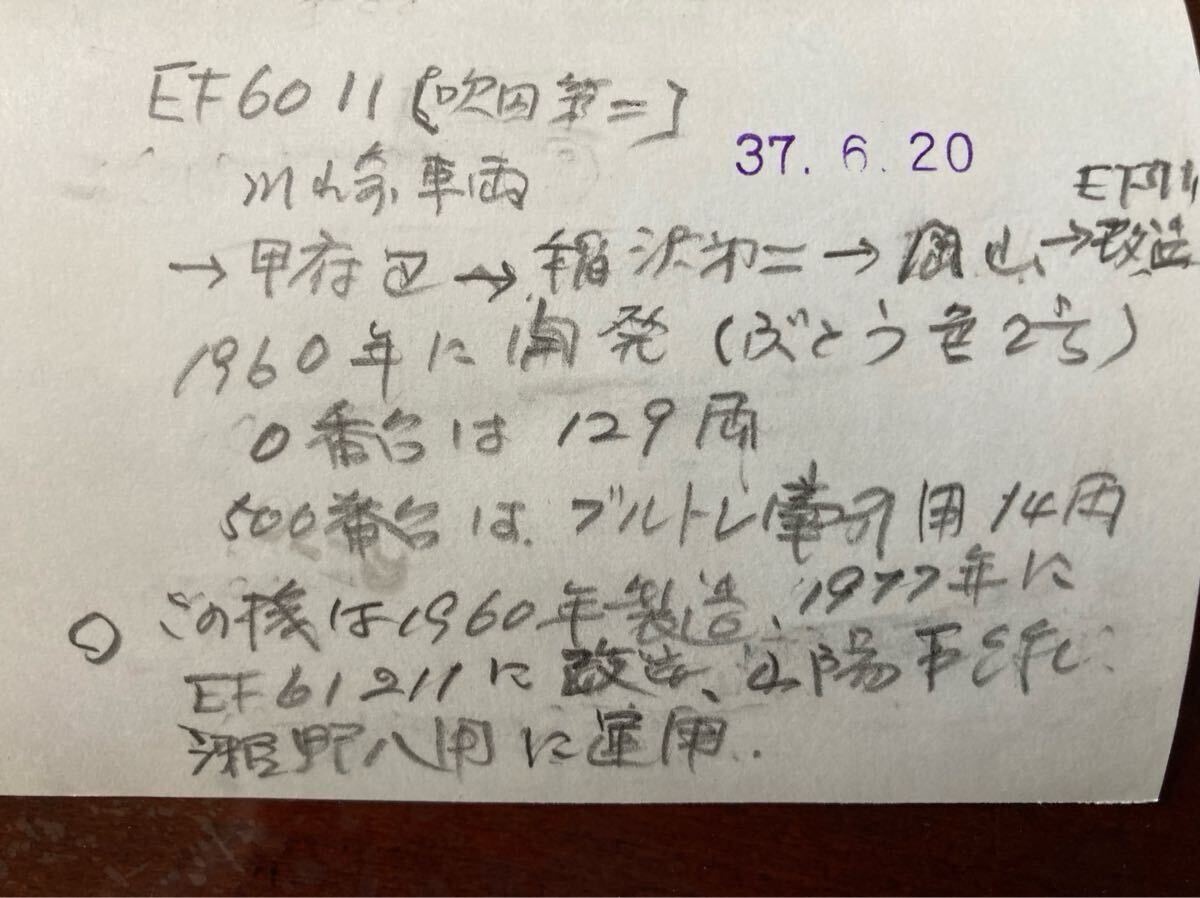 EF60 11 [吹田第二]
37. 6. 20
川崎車両
EF61
→甲府 →稲沢第二→岡山→改造
1960年に開発(ぶどう色2号)
0番台は 129両
500番台は ブルトレ牽引用 14両
この機は1960年製造、1977年に
EF61 211に改造、山陽
瀬野八用に運用..